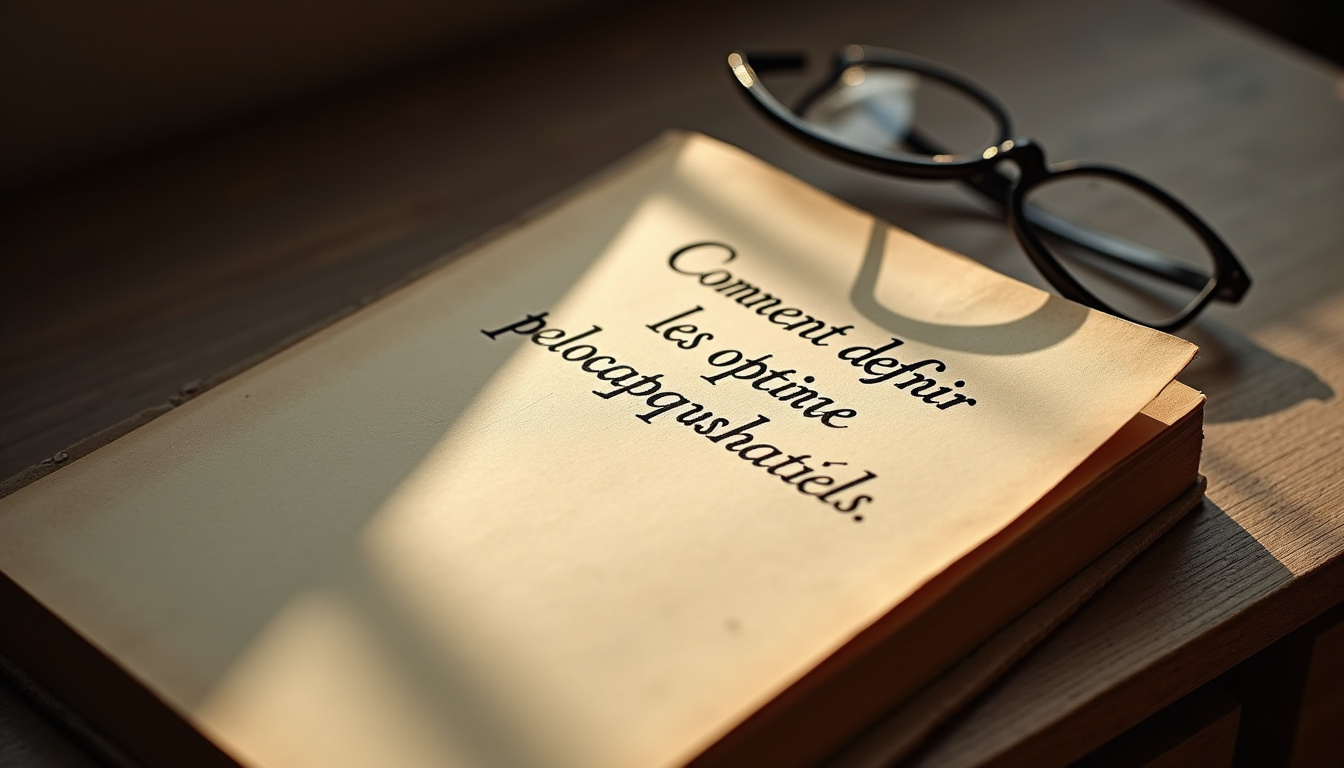 Comnent defnir
les optime
pelocapqushatiéls.